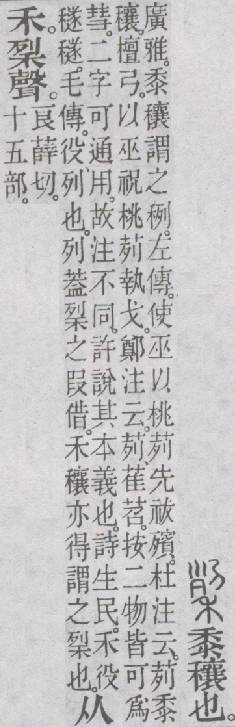 黍穰也。
廣雅。黍穰謂之䅀。左傳。使巫以桃茢先祓殯。杜注云。茢、黍
穰。檀弓。以巫祝桃茢執戈。鄭注云。茢、萑苕。按二物皆可爲
彗。二字可通用。故注不同。許說其本義也。詩生民。禾役
穟穟。毛傳。役、列也。列葢之叚借。禾穰亦得謂之也。从
禾聲。
良薛切。
十五部。